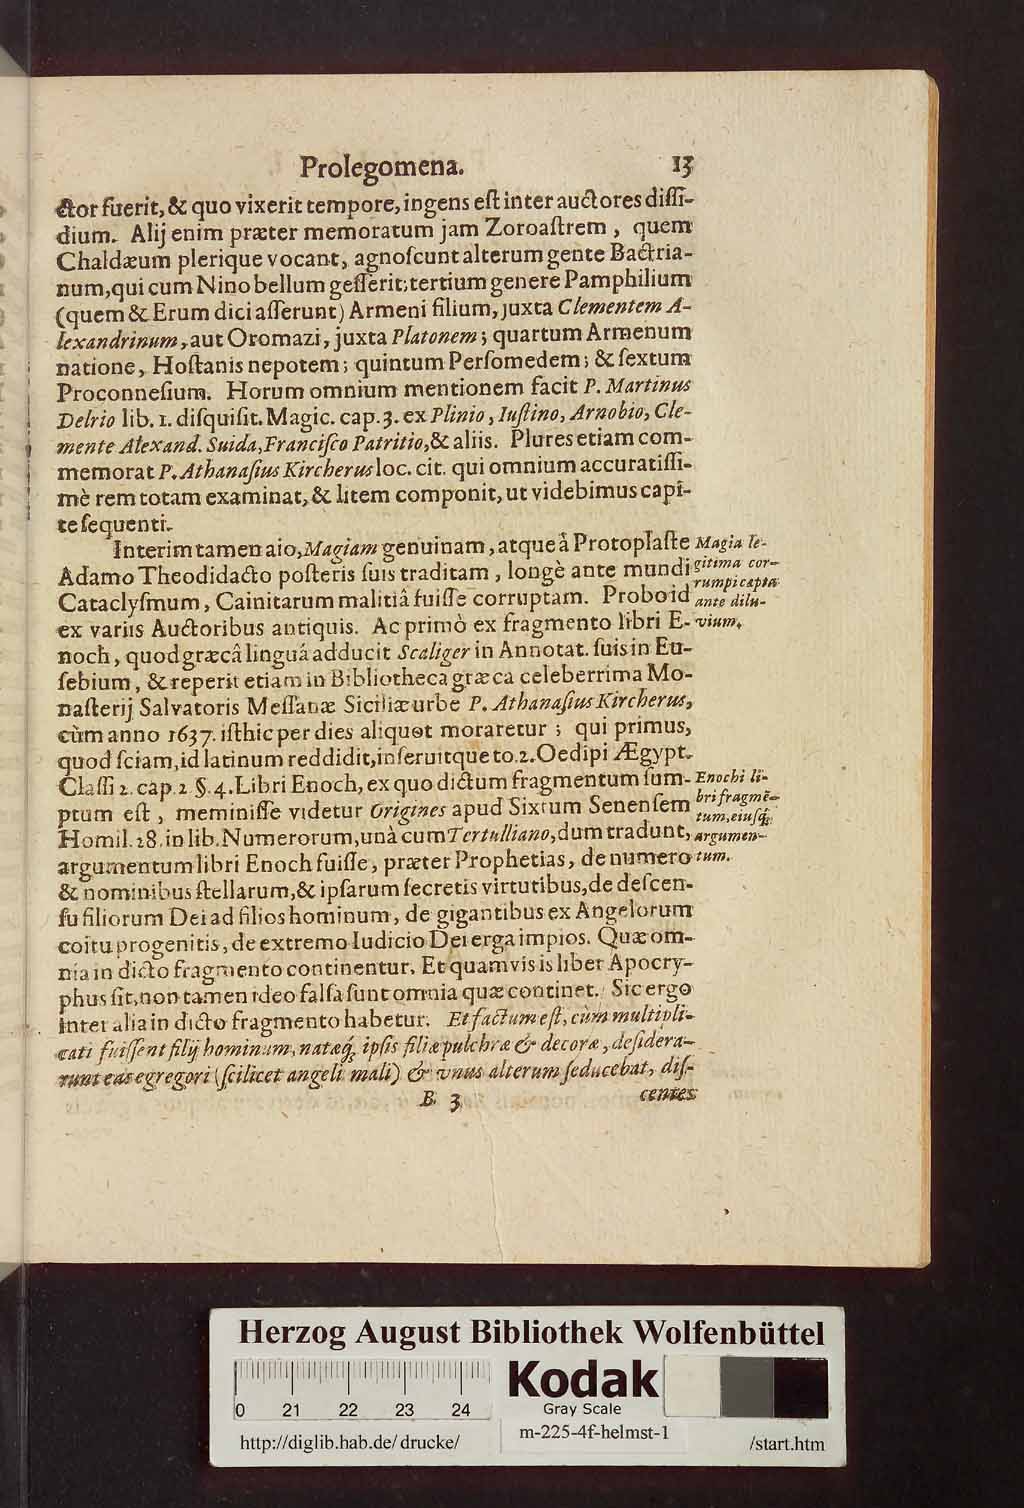 Prolegomena. 13
ctor fuerit, & quo vixerit tempore, ingens eſt inter auctores diſſi-
dium. Alij enim præter memoratum jam Zoroaſtrem, quem
Chaldæum plerique vocant, agnoſcunt alterum gente Bactria-
num, qui cum Nino bellum geſſerit; tertium genere Pamphilium
(quem & Erum dici aſſerunt) Armeni filium, juxta Clementem A-
lexandrinum, aut Oromazi, juxta Platonem; quartum Armenum
natione, Hoſtanis nepotem; quintum Perſomedem; & ſextum
Proconneſium. Horum omnium mentionem facit P. Martinus
Delrio lib. 1. diſquiſit. Magic. cap. 3. ex Plinio, Iuſtino, Arnobio, Cle-
mente Alexand. Suida, Franciſco Patritio, & aliis. Plures etiam com-
memorat P. Athanaſius Kircherus loc. cit. qui omnium accuratiſſi-
mè rem totam examinat, & litem componit, ut videbimus capi-
te ſequenti.
Interim tamen aio, Magiam genuinam, atque â Protoplaſte
Adamo Theodidacto poſteris ſuis traditam, longè ante mundi
Cataclyſmum, Cainitarum malitiâ fuiſſe corruptam. Probo id
ex variis Auctoribus antiquis. Ac primò ex fragmento libri E-
noch, quod græcâ linguâ adducit Scaliger in Annotat. ſuis in Eu-
ſebium, & reperit etiam in Bibliotheca græca celeberrima Mo-
naſterij Salvatoris Meſſanæ Siciliæ urbe P. Athanaſius Kircherus,
cùm anno 1637. iſthic per dies aliquot moraretur; qui primus,
quod ſciam, id latinum reddidit, inſeruitque to. 2. Oedipi Ægypt.
Claſſi 2. cap. 2 §. 4. Libri Enoch, ex quo dictum fragmentum ſum-
ptum eſt, meminiſſe videtur Origines apud Sixtum Senenſem
Homil. 28. in lib. Numerorum, unà cum Tertulliano, dum tradunt,
argumentum libri Enoch fuiſſe, præter Prophetias, de numero
& nominibus ſtellarum, & ipſarum ſecretis virtutibus, de deſcen-
ſu filiorum Dei ad filios hominum, de gigantibus ex Angelorum
coitu progenitis, de extremo Iudicio Dei erga impios. Quæ om-
nia in dicto fragmento continentur. Et quamvis is liber Apocry-
phus ſit, non tamen ideo falſa ſunt omnia quæ continet. Sic ergo
inter alia in dicto fragmento habetur. Et factum eſt, cùm multipli-
cati fuiſſent filij hominum, natæq́; ipſis filiæ pulchræ & decoræ, deſidera-
runt eas egregori (ſcilicet angeli mali) & unus alterum ſeducebat, diſ-
B 3 centes
Magia le-
gitima cor-
rumpi cæpta
ante dilu-
vium.
Enochi li-
bri fragmē-
tum, eiuſq́;
argumen-
tum.
Herzog August Bibliothek Wolfenbüttel
Kodak
Gray Scale
0 21 22 23 24
http://diglib.hab.de/drucke/
m-225-4f-helmst-1
/start.htm